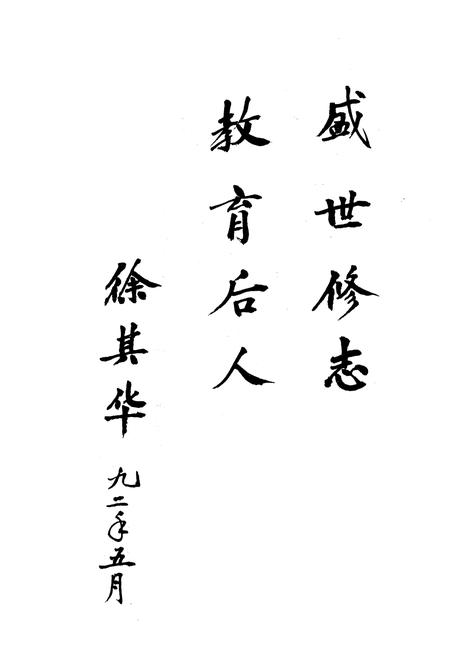 盛世修志
教育后人
徐其华
九二年五月